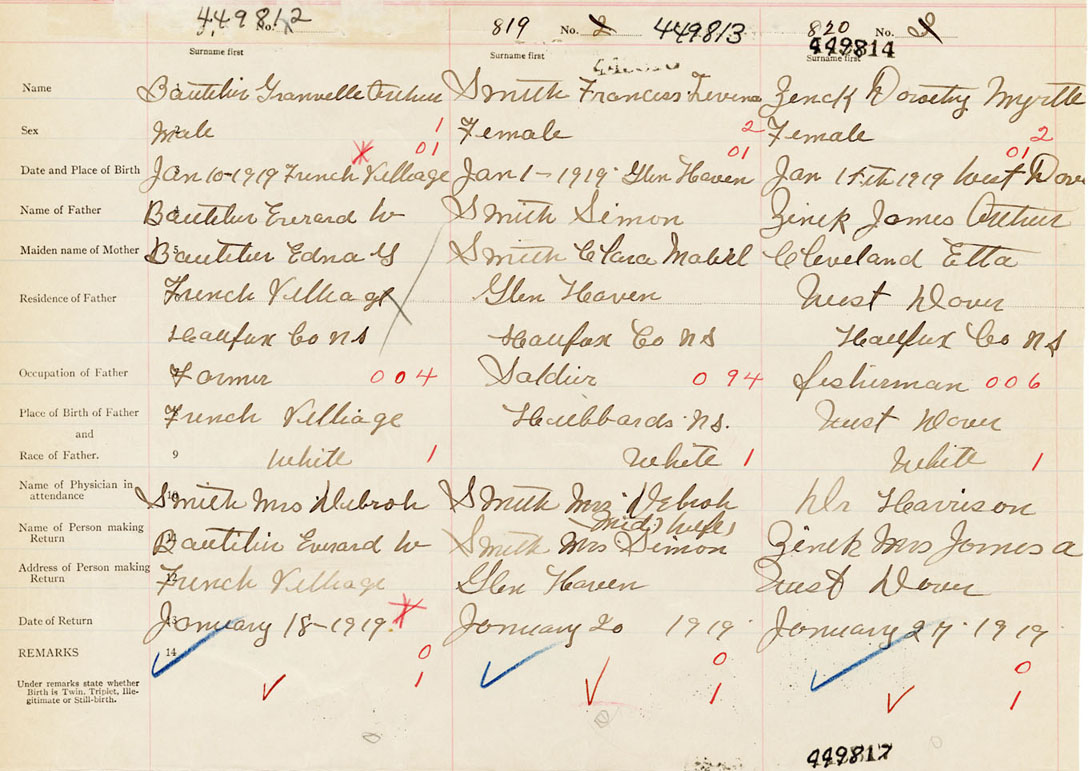 449812 No. 819 No. 2 449813 820 No. 449814
Surname first Surname first Surname first
Name Boutilier Granvelle Arthur Smith Franciss Levina Zinck Dorothy Myrtle
Sex Male 1 Female 2 Female 2
01 01 01
Date and Place of Birth Jan 10-1919 French Villiage Jan 1-1919 Glen Haven Jan 15th 1919 West Dover
Name of Father Boutilier Everard W Smith Simon Zinck James Arthur
Maiden name of Mother 5 Boutilier Edna G Smith Clara Mabel Cleveland Etta
Residence of Father French Villiage Glen Haven West Dover
Halifax Co NS Halifax Co NS Halifax Co NS
Occupation of Father Farmer 004 Soldier 094 fisherman 006
Place of Birth of Father French Villiage Hubbards NS. West Dover
and
Race of Father. 9 White 1 White 1 White 1
Name of Physician in
attendance 10 Smith Mrs Debroh Smith Mrs Debroh Dr Harrison
mid wife
Name of Person making
Return Boutilier Everard W Smith Mrs Simon Zinck Mrs James A
Address of Person making
Return 12 French Villiage Glen Haven West Dover
Date of Return 13 January 18-1919. January 20 1919 January 27 1919
REMARKS 14 0 0 0
Under remarks state whether
Birth is Twin, Triplet, Ille-
gitimate or Still-birth. 1 1 1
449817